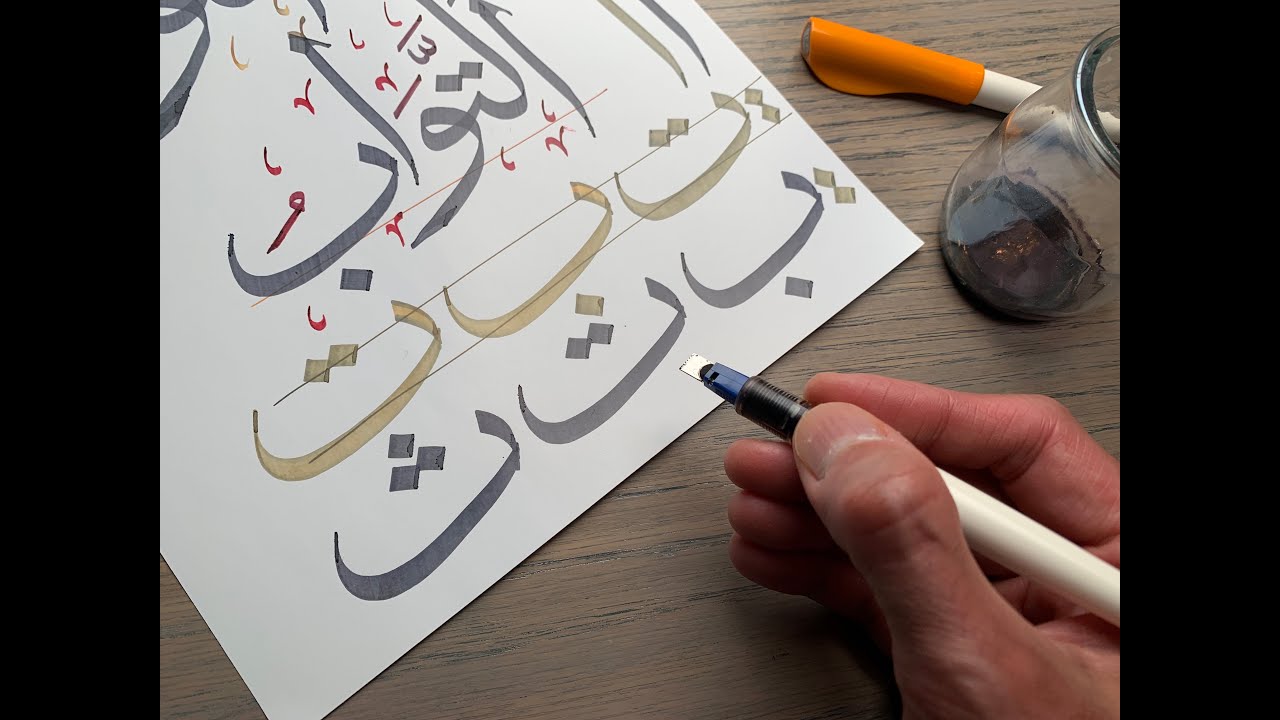 التَّوَّابُ
ت ب ت
ب ت ث